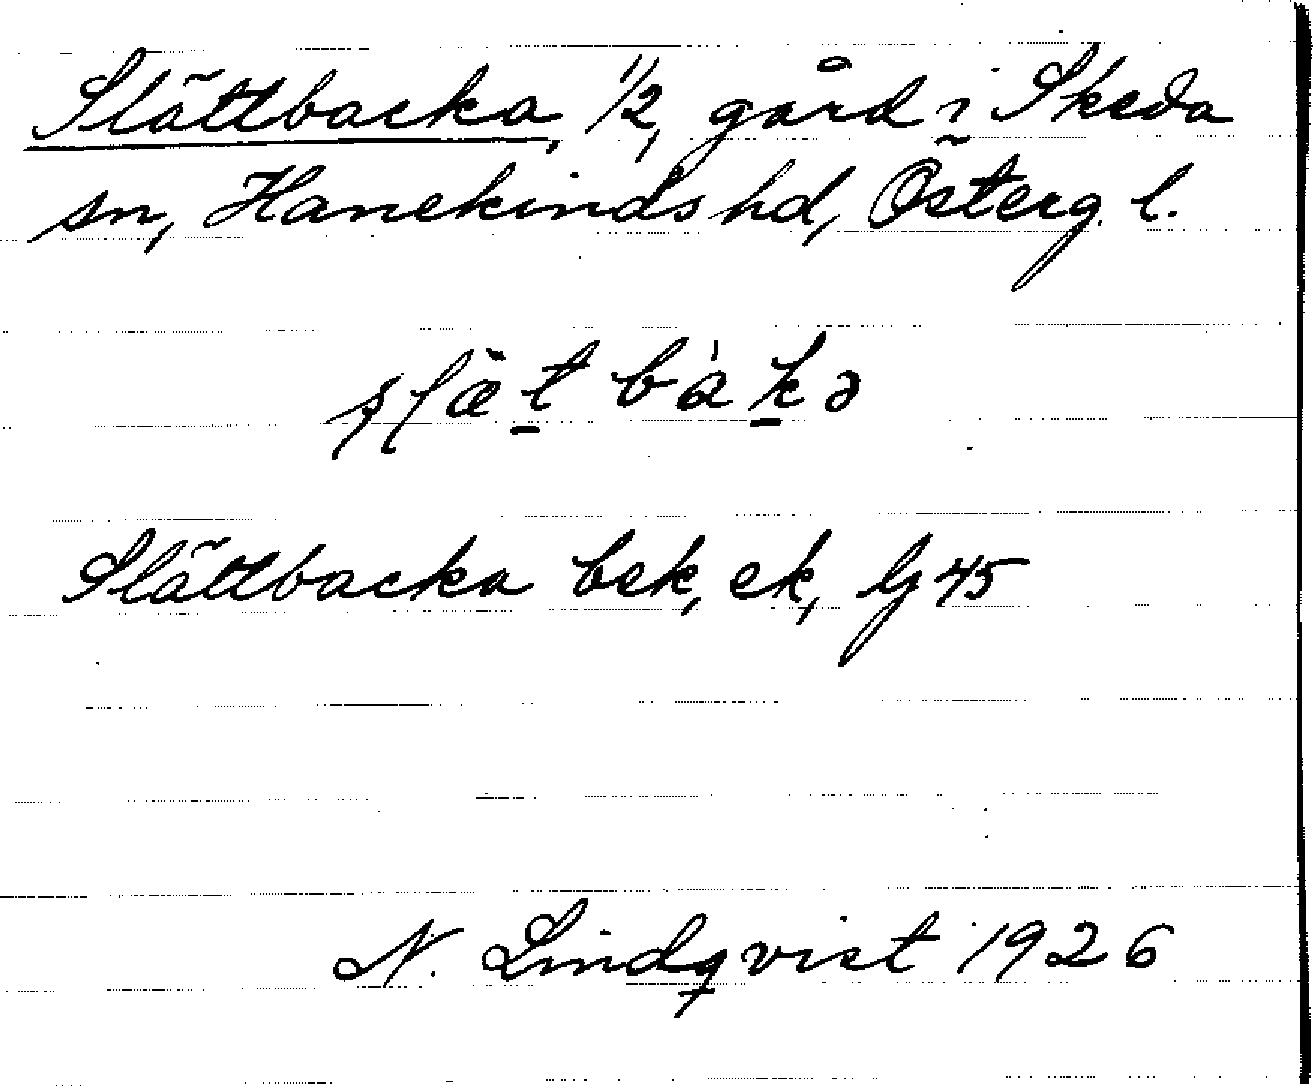 Slättbacka, 1/2, gård i Skeda
sn, Hanekinds hd, Österg. l.
Slättbacka bek, ek, Gj 45
N. Lindqvist 1926